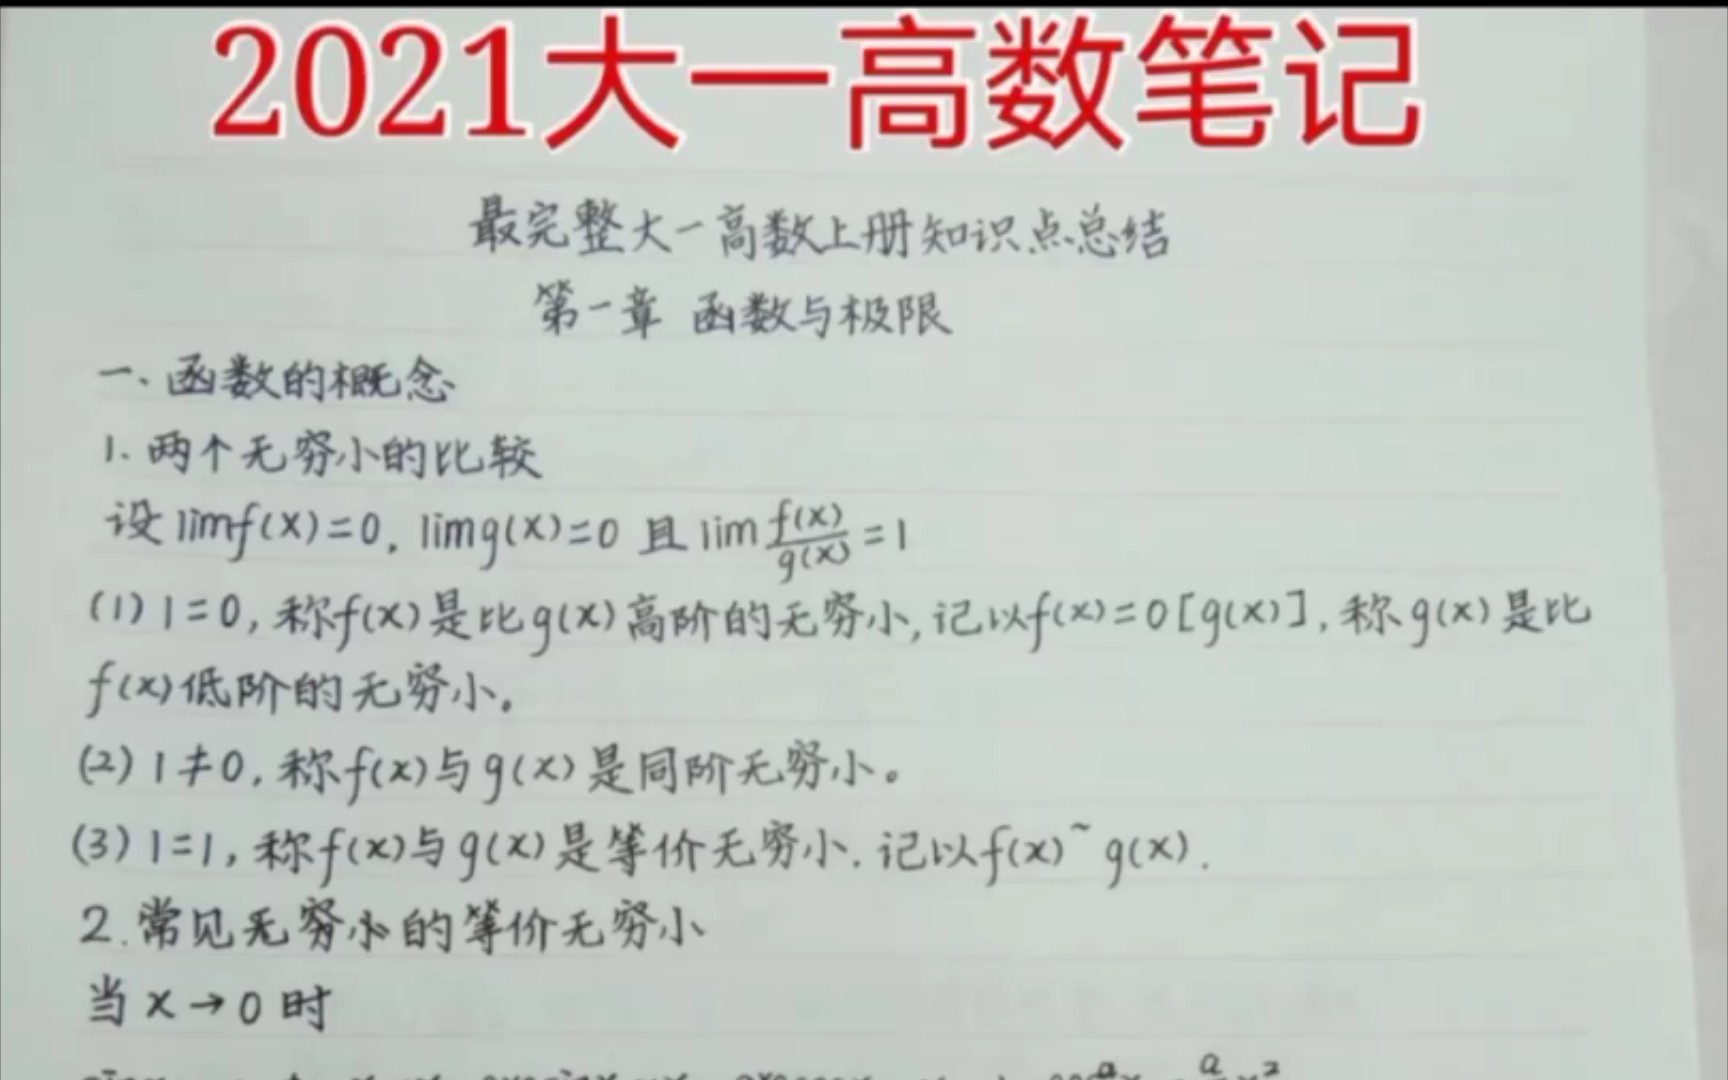 2021大一高数笔记
最完整大一高数上册知识点总结
第一章 函数与极限
一、函数的概念
1.两个无穷小的比较
设limf(x)=0, limg(x)=0 且 lim f(x)/g(x) = l
(1) l=0, 称f(x)是比g(x)高阶的无穷小, 记以f(x)=0[g(x)], 称g(x)是比
f(x)低阶的无穷小。
(2) l≠0, 称f(x)与g(x)是同阶无穷小。
(3) l=1, 称f(x)与g(x)是等价无穷小. 记以f(x)~g(x).
2.常见无穷小的等价无穷小
当 x→0 时